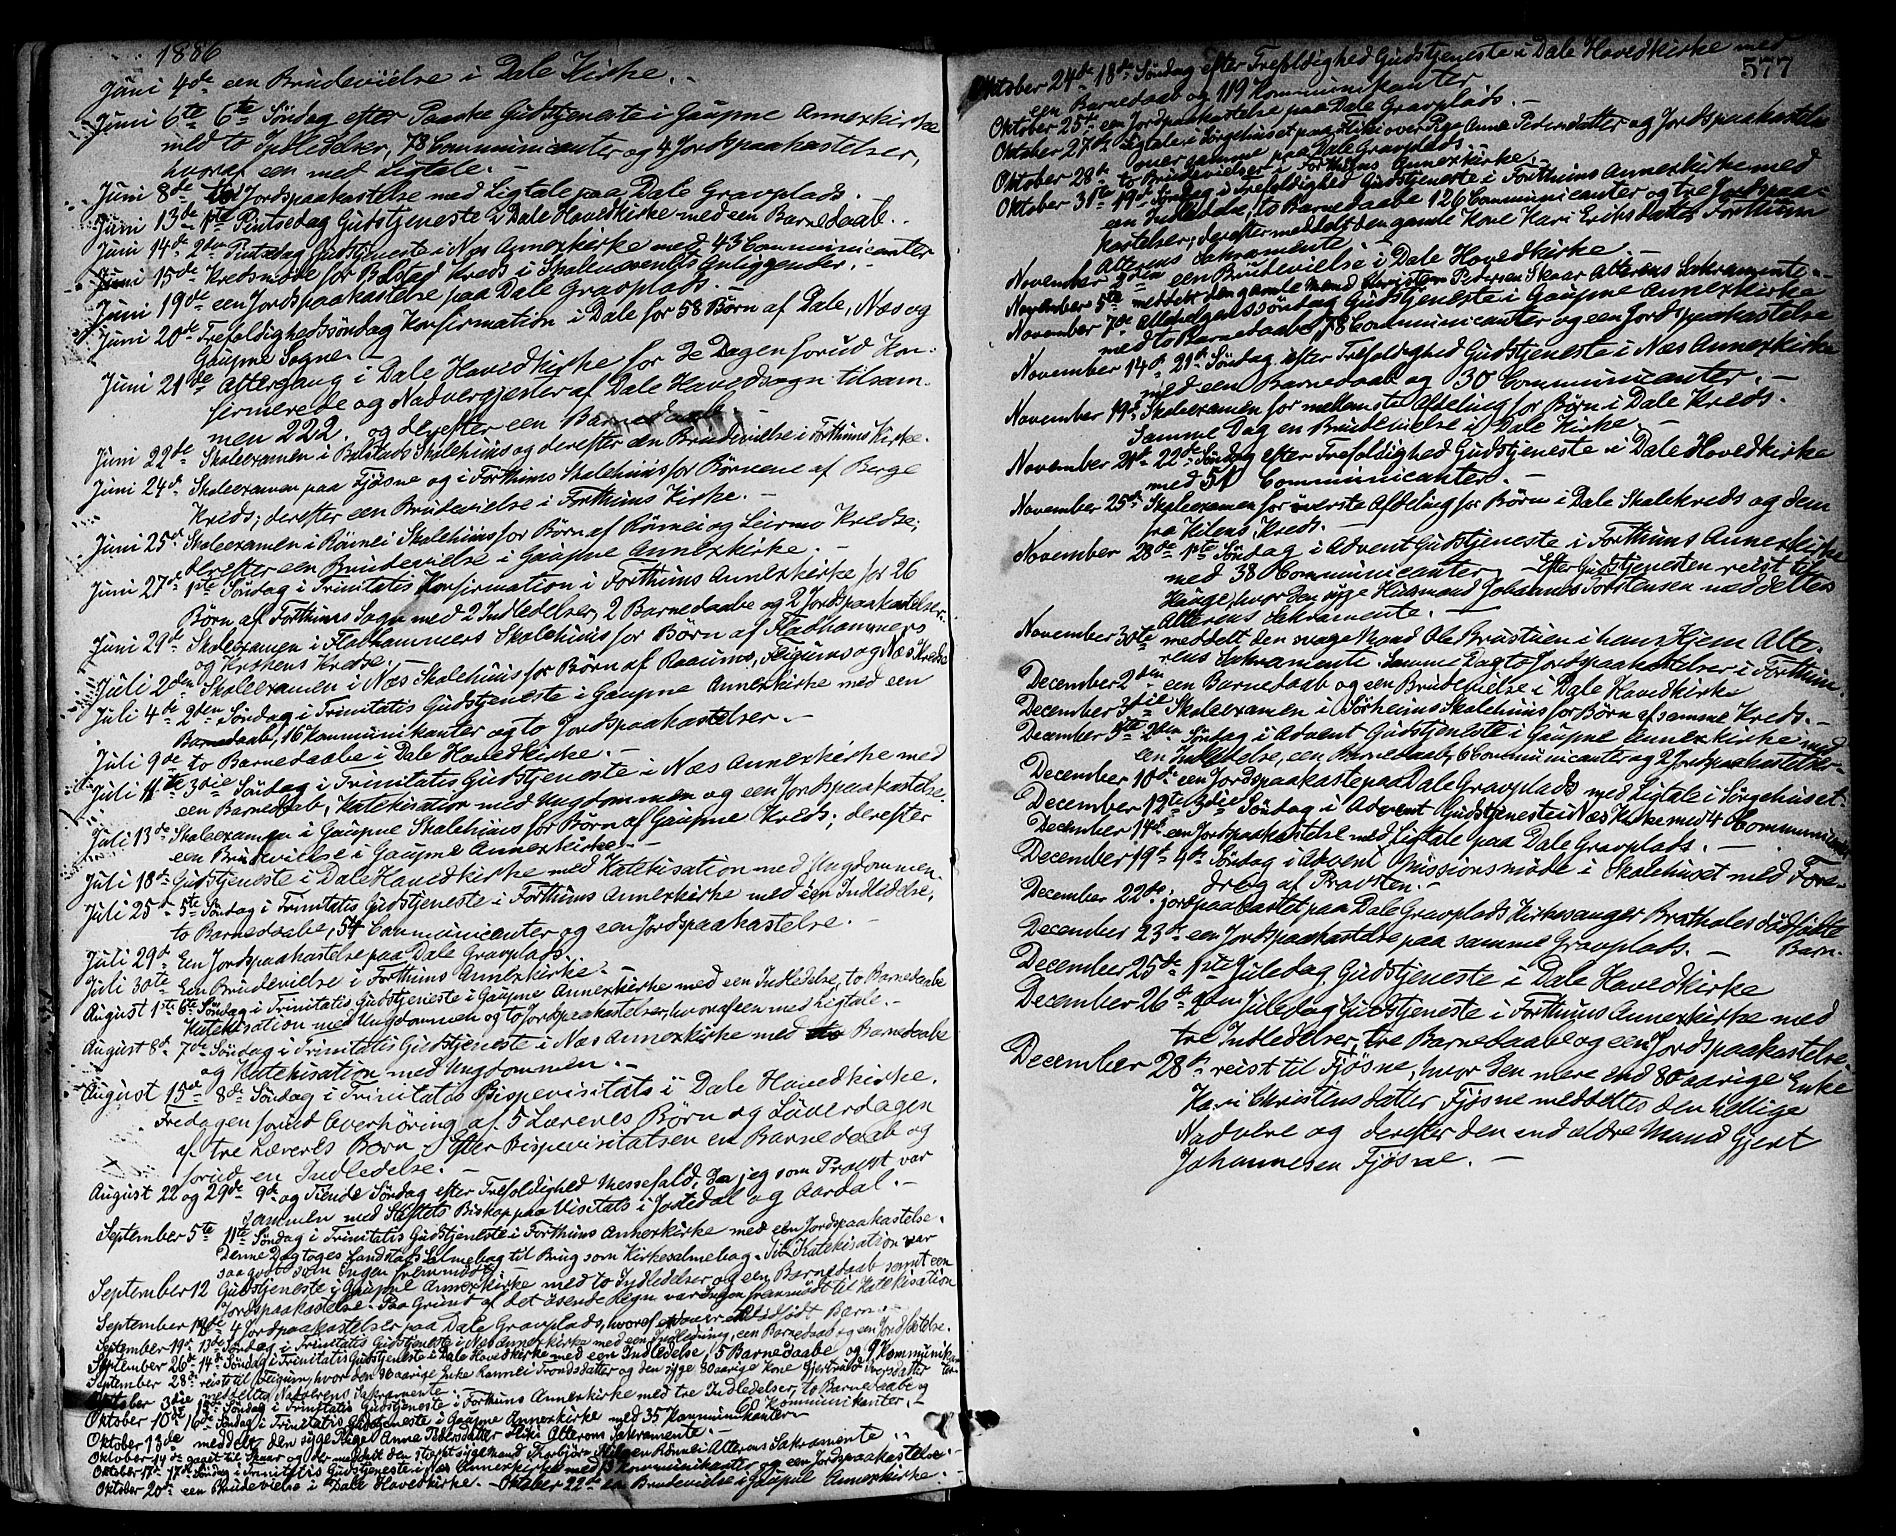 1886
Juni 4de een Brudevielse i Dale Kirke. -
Juni 6te 6te Söndag efter Paaske Gudstjeneste i Gaupne Annexkirke
med to Indledelser, 78 Communicanter og 4 Jordspaakastelser,
hvoraf een med Ligtale. -
Juni 8de Jordspaakastelse med Ligtale paa Dale Gravplads. -
Juni 13de 1ste Pintsedag Gudstjeneste i Dale Hovedkirke med een Barnedaab. -
Juni 14de 2den Pintsedag Gudstjeneste i Næs Annexkirke med 43 Communicanter
Juni 15de Kredsmöde for Bolsted Kreds i Skolevæsenets Anliggender. -
Juni 19de een Jordspaakastelse paa Dale Gravplads. -
Juni 20de Trefoldighedssöndag Konfirmation i Dale for 58 Börn af Dale, Næs og
Gaupne Sogne. -
Juni 21de Altergang i Dale Hovedkirke for de Dagen forud Kon-
firmerede og Nadvergjester af Dale Hovedsogn tilsam-
men 222. og derefter een Barnedaab. -
Juni 22de Skoleexamen i Bolstads Skolehuus og derefter een Brudevielse i Forthuns Kirke. -
Juni 24de Skoleexamen paa Fjøsne og i Forthuns Skolehuus for Börnene af Berge
Kreds; derefter een Brudevielse i Forthuns Kirke. -
Juni 25de Skoleexamen i Rönnei Skolehuus for Börn af Rönnei og Leirmo Kredse;
derefter een Brudevielse i Gaupne Annexkirke. -
Juni 27de 1ste Söndag i Trinitatis Konfirmation i Forthuns Annexkirke for 26
Börn af Forthuns Sogn med 2 Indledelser, 2 Barnedaabe og 2 Jordspaakastelser. -
Juni 29de Skoleexamen i Fladhammers Skolehuus for Börn af Fladhammers
og Krokens Kredse. -
Juli 2den Skoleexamen i Næs Skolehuus for Börn af Raaums, Feigums og Næs Kredse
Juli 4de 2den Söndag i Trinitatis Gudstjeneste i Gaupne Annexkirke med een
Barnedaab, 16 Kommunikanter og to Jordspaakastelser. -
Juli 9de to Barnedaabe i Dale Hovedkirke. -
Juli 11te 3die Söndag i Trinitatis Gudstjeneste i Næs Annexkirke med
een Barnedaab, Katekisation med Ungdommen og een Jordspaakastelse.
Juli 13de Skoleexamen i Gaupne Skolehuus for Börn af Gaupne Kreds; derefter
een Brudevielse i Gaupne Annexkirke. -
Juli 18de Gudstjeneste i Dale Hovedkirke med Katekisation med Ungdommen.
Juli 25de 5te Söndag i Trinitatis Gudstjeneste i Forthuns Annexkirke med een Indledelse,
to Barnedaabe, 54 Communicanter og een Jordspaakastelse.
Juli 29de Een Jordspaakastelse paa Dale Gravplads.
Juli 30te Een Brudevielse i Forthuns Annexkirke. -
August 1ste 6te Söndag i Trinitatis Gudstjeneste i Gaupne Annexkirke med een Indledelse, to Barnedaabe
Katekisation med Ungdommen og to Jordspaakastelser, hvoraf een med Ligtale. -
August 8de 7de Söndag i Trinitatis Gudstjeneste i Næs Annexkirke med Barnedaabe
og Katekisation med Ungdommen. -
August 15de 8de Söndag i Trinitatis Bispevisitats i Dale Hovedkirke.
Fredagen forud Overhöring af 5 Læreres Börn og Löverdagen
af tre Læreres Börn. Efter Bispevisitatsen en Barnedaab og
forud en Indledelse. -
August 22 og 29de 9de og Tiende Söndag efter Trefoldighed Messefald, da jeg som Provst var
sammen med Stiftets Biskop paa Visitats i Jostedal og Aardal. -
September 5te 11te Söndag i Trinitatis Gudstjeneste i Forthuns Annexkirke med een Jordspaakastelse.
Denne Dag toges Landstads Salmebog til Brug som Kirkesalmebog. Til Katekisation var
saagodt som Ingen fremmödt.
September 12 Gudstjeneste i Gaupne Annexkirke med to Indledelser og een Barnedaab samt een
Jordspaakastelse. Paa Grund af det øsende Regn var Ingen fremmödt til Katekisation
September 4 Jordspaakastelser paa Dale Gravplads, hvoraf Barn. -
September 19de 13de Söndag i Trinitatis Gudstjeneste i Næs Annexkirke med een Indledning, een Barnedaab og een
September 26de 14de Söndag i Trinitatis Gudstjeneste i Dale Hovedkirke med een Indledelse, 5 Barnedaabe og 9 Kommunikan-
September 28de reist til Feigum, hvor den 80aarige Enke Rannei Trondsdatter og den syge 80aarige Kone Gjertrud Iversdatter
meddeltes Nadverens Sakramente
Oktober 3die 15de Söndag i Trinitatis Gudstjeneste i Forthuns Annexkirke med tre Indledelser, to Barnedaabe og
60 Kommunikanter. -
Oktober 10de 16de Söndag i Trinitatis Gudstjeneste i Gaupne Annexkirke med 35 Kommunikanter
Oktober 13de meddelt den syge Pige Anna Pedersdatter Fliki Alterens Sakramente. -
Oktober 14de gaaet til Skaar og der meddelt den stærkt syge Mand Thorbjörn Rönnei Alterens Sakramente
Oktober 17de 17de Söndag i Trinitatis Gudstjeneste i Næs Annexkirke med Kommunikanter og een Jordspaakastelse. -
Oktober 20de een Brudevielse i Dale Hovedkirke. - Oktober 22de en Brudevielse i Gaupne Annexkirke. -
577
Oktober 24de 18de Söndag efter Trefoldighed Gudstjeneste i Dale Hovedkirke med
een Barnedaab og 119 Kommunikanter
Oktober 25de een Jordspaakastelse paa Dale Gravplads. -
Oktober 27de Ligtale i Sörgehuset paa Fliki over Pige Anna Pedersdatter og Jordspaakastelse
over samme paa Dale Gravplads. -
Oktober 28de to Brudevielser i Forthuns Annexkirke.
Oktober 31te 19de Söndag i Trefoldighed Gudstjeneste i Forthuns Annexkirke med
een Indledelse, to Barnedaabe 126 Communicanter og tre Jordspaa-
kastelser; derefter meddelt den gamle Kone Kari Eriksdatter Forthun
Alterens Sakramente. -
November een Brudevielse i Dale Hovedkirke. -
November 5te meddelt den gamle Mand Christen Pedersen Skaar Alterens Sakramente. -
November 7de Allehelgenssöndag Gudstjeneste i Gaupne Annexkirke
med to Barnedaabe, 78 Communicanter og een Jordspaakastelse
November 14de 21de Söndag efter Trefoldighed Gudstjeneste i Næs Annexkirke
med een Barnedaab og 30 Communicanter. -
November 19de Skoleexamen for mellemste Afdeling for Börn i Dale Kreds.
Samme Dag en Brudevielse i Dale Kirke. -
November 21de 22de Söndag efter Trefoldighed Gudstjeneste i Dale Hovedkirke
med 51 Communicanter. -
November 25de Skoleexamen for överste Afdeling for Börn i Dale Skolekreds og dem
fra Kilens Kreds. -
November 28de 1ste Söndag i Advent Gudstjeneste i Forthuns Annexkirke
med 38 Communicanter. Efter Gudstjenesten reist til
Hauge, hvor den syge Huusmand Johannes Torstensen meddeltes
Alterens Sakramente. -
November 30te meddelt den svage Mand Ole Brustuen i hans Hjem Alte-
rens Sakramente. Samme Dag to Jordspaakastelser i Forthun.
December 2den een Barnedaab og een Brudevielse i Dale Hovedkirke
December 3die Skoleexamen i Sörheims Skolehuus for Börn af samme Kreds. -
December 5te 2den Söndag i Advent Gudstjeneste i Gaupne Annexkirke med
een Indledelse, een Barnedaab, 6 Communicanter og 2 Jordspaakastelser
December 10de een Jordspaakaste paa Dale Gravplads med Ligtale i Sörgehuset.
December 12te 3die Söndag i Advent Gudstjeneste i Næs Kirke med 4 Communicanter
December 14de een Jordspaakastelse med Ligtale paa Dale Gravplads. -
December 19de 4de Söndag i Advent Missionsmöde i Skolehuset med Fore-
drag af Provsten. -
December 22de jordspaakastet paa Dale Gravplads Kirkesanger Brathales dödfödte
Barn.
December 23de een Jordspaakastelse paa samme Gravplads. -
December 25de 1ste Juledag Gudstjeneste i Dale Hovedkirke
December 26de 2den Juledag Gudstjeneste i Forthuns Annexkirke med
tre Indledelser, tre Barnedaabe og een Jordspaakastelse
December 28de reist til Fjøsne, hvor den mere end 80aarige Enke
Kari Christensdatter Fjøsne meddeltes den hellige
Nadvere og derefter den end ældre Mand Gjert
Johannesen Fjøsne. -